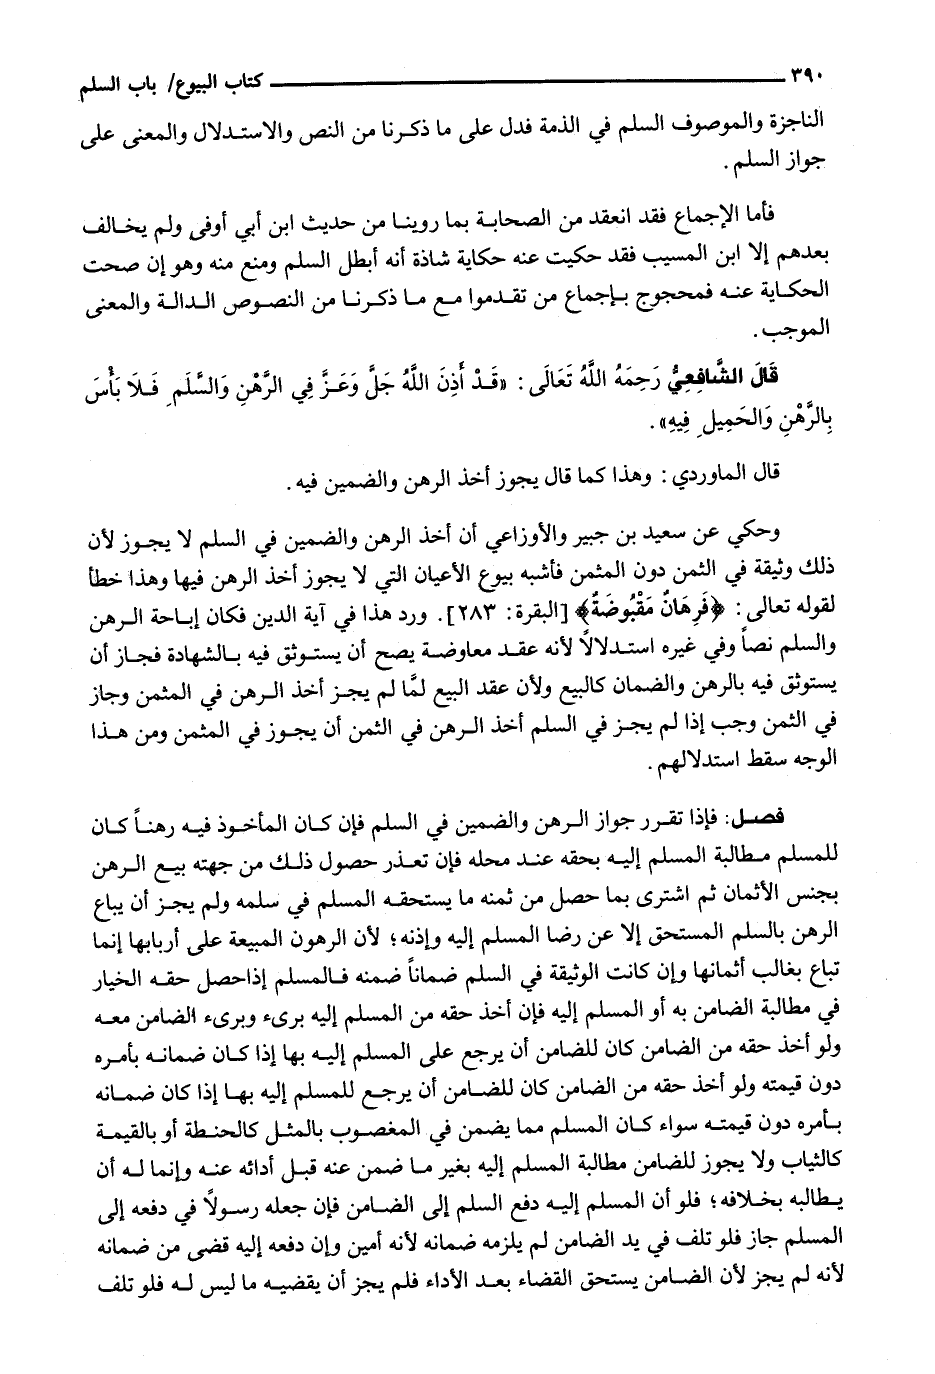 ٣٩٠ كتاب البيوع/ باب السلم
الناجزة والموصوف السلم في الذمة فدل على ما ذكرنا من النص والاستدلال والمعنى على
جواز السلم.
فأما الإجماع فقد انعقد من الصحابة بما روينا من حديث ابن أبي أوفى ولم يخالف
بعدهم إلا ابن المسيب فقد حكيت عنه حكاية شاذة أنه أبطل السلم ومنع منه وهو إن صحت
الحكاية عنه فمحجوج بإجماع من تقدموا مع ما ذكرنا من النصوص الدالة والمعنى
الموجب.
قَالَ الشَّافِعِيُّ رَحِمَهُ اللَّهُ تَعَالَى: «قَدْ أَذِنَ اللَّهُ جَلَّ وَعَزَّ فِي الرَّهْنِ وَالسَّلَمِ فَلَا بَأْسَ
بِالرَّهْنِ وَالحَمِيلِ فِيهِ».
قال الماوردي: وهذا كما قال يجوز أخذ الرهن والضمين فيه.
وحكي عن سعيد بن جبير والأوزاعي أن أخذ الرهن والضمين في السلم لا يجوز لأن
ذلك وثيقة في الثمن دون المثمن فأشبه بيوع الأعيان التي لا يجوز أخذ الرهن فيها وهذا خطأ
لقوله تعالى: ﴿فَرِهَانٌ مَقْبُوضَةٌ﴾ [البقرة: ٢٨٣]. ورد هذا في آية الدين فكان إباحة الرهن
والسلم نصاً وفي غيره استدلالاً لأنه عقد معاوضة يصح أن يستوثق فيه بالشهادة فجاز أن
يستوثق فيه بالرهن والضمان كالبيع ولأن عقد البيع لمَّا لم يجز أخذ الرهن في المثمن وجاز
في الثمن وجب إذا لم يجز في السلم أخذ الرهن في الثمن أن يجوز في المثمن ومن هذا
الوجه سقط استدلالهم.
فصل: فإذا تقرر جواز الرهن والضمين في السلم فإن كان المأخوذ فيه رهناً كان
للمسلم مطالبة المسلم إليه بحقه عند محله فإن تعذر حصول ذلك من جهته بيع الرهن
بجنس الأثمان ثم اشترى بما حصل من ثمنه ما يستحقه المسلم في سلمه ولم يجز أن يباع
الرهن بالسلم المستحق إلا عن رضا المسلم إليه وإذنه؛ لأن الرهون المبيعة على أربابها إنما
تباع بغالب أثمانها وإن كانت الوثيقة في السلم ضماناً ضمنه فالمسلم إذاحصل حقه الخيار
في مطالبة الضامن به أو المسلم إليه فإن أخذ حقه من المسلم إليه برىء وبرىء الضامن معه
ولو أخذ حقه من الضامن كان للضامن أن يرجع على المسلم إليه بها إذا كان ضمانه بأمره
دون قيمته ولو أخذ حقه من الضامن كان للضامن أن يرجع للمسلم إليه بها إذا كان ضمانه
بأمره دون قيمته سواء كان المسلم مما يضمن في المغصوب بالمثل كالحنطة أو بالقيمة
كالثياب ولا يجوز للضامن مطالبة المسلم إليه بغير ما ضمن عنه قبل أدائه عنه وإنما له أن
يطالبه بخلافه؛ فلو أن المسلم إليه دفع السلم إلى الضامن فإن جعله رسولاً في دفعه إلى
المسلم جاز فلو تلف في يد الضامن لم يلزمه ضمانه لأنه أمين وإن دفعه إليه قضى من ضمانه
لأنه لم يجز لأن الضامن يستحق القضاء بعد الأداء فلم يجز أن يقضيه ما ليس له فلو تلف